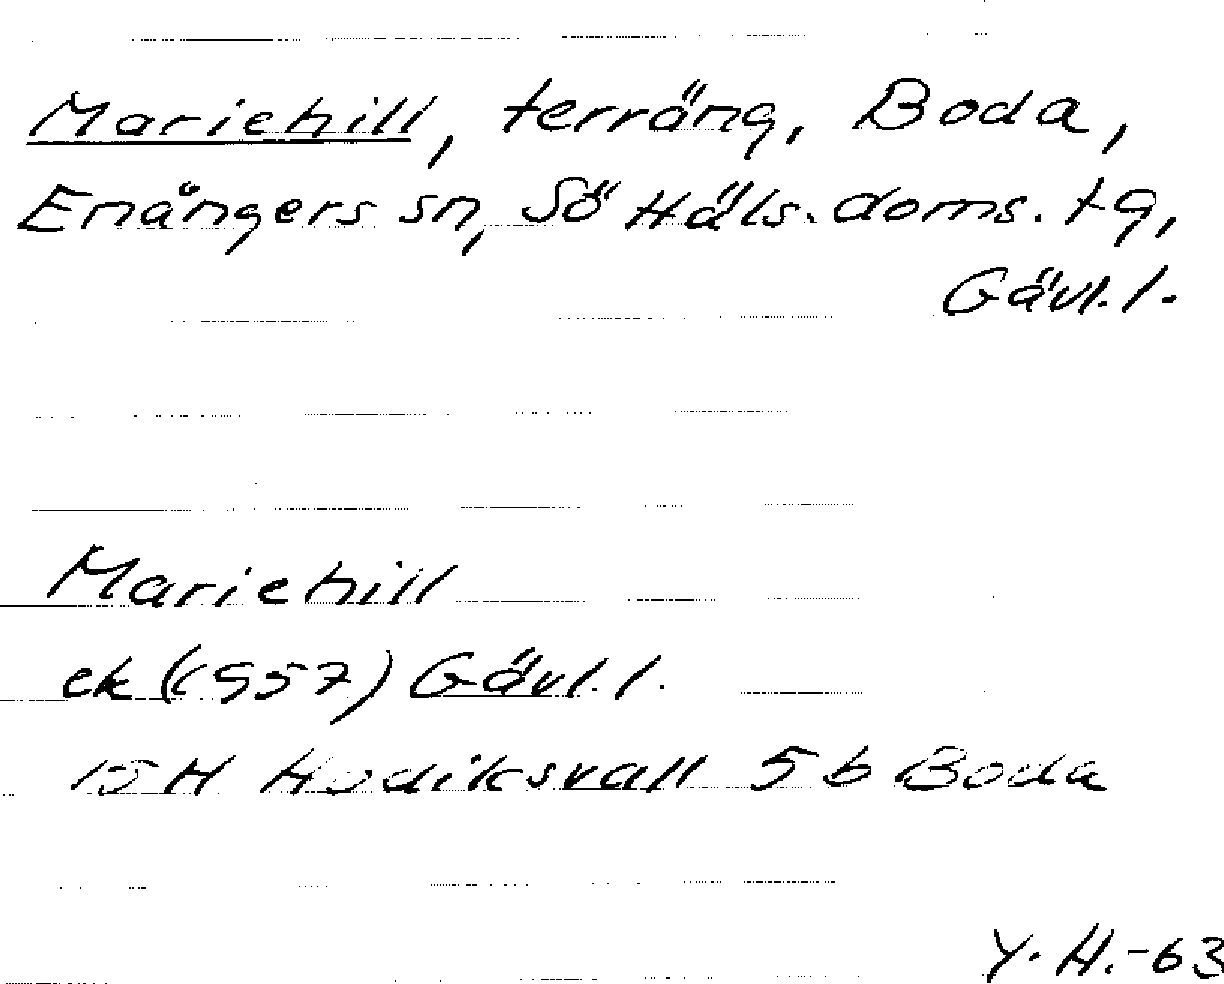 Mariehill, terräng, Boda,
Enångers sn, Sö Häls. doms. tg,
Gävl. l.
Mariehill
ek (1957) Gävl. l.
15 H Hudiksvall 5 b Boda
Y. H. -63